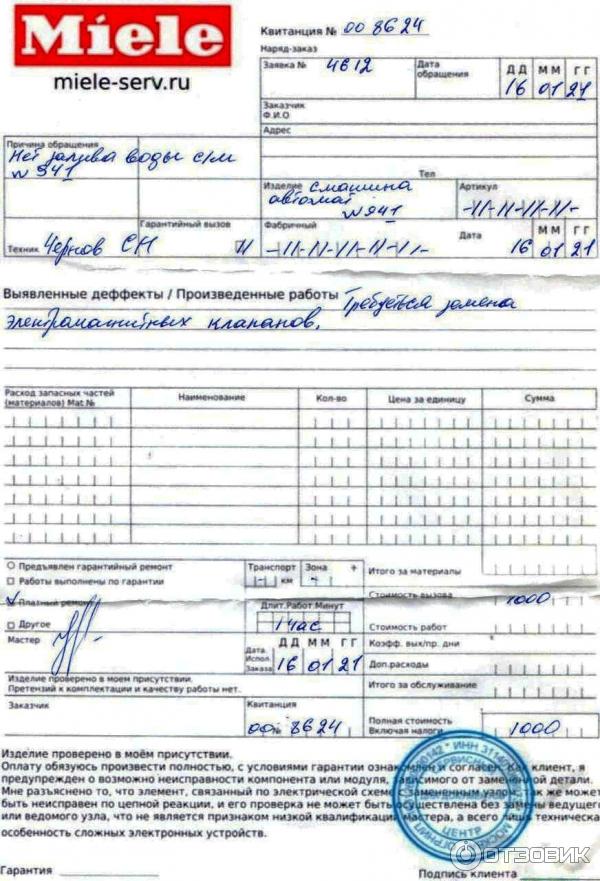 Miele
miele-serv.ru
Квитанция № 00 8624
Наряд-заказ
Заявка № 4612
Дата обращения
ДД ММ ГГ
16 01 21
Заказчик
Ф.И.О
Адрес
Причина обращения
Нет залива воды с/м
N 941
Тел
Изделие с машина автомат N 941
Артикул -//-//-//-//-
Гарантийный вызов
Техник Чернов СН
Фабричный -//-//-//-//-//-
Дата
ДД ММ ГГ
16 01 21
Выявленные деффекты / Произведенные работы Требуеться замена
электрамагнитных клапанов.
Расход запасных частей (материалов) Mat.№
Наименование
Кол-во
Цена за единицу
Сумма
Предъявлен гарантийный ремонт
Работы выполнены по гарантии
Платный ремонт
Другое
Транспорт
км
Зона +
Длит.Работ.Минут
1 час
Итого за материалы
Стоимость вызова 1000
Стоимость работ
Коэфф. вых/пр. дни
Доп.расходы
Итого за обслуживание
Мастер
Дата. Испол. Заказа
ДД ММ ГГ
16 01 21
Изделие проверено в моем присутствии.
Претензий к комплектации и качеству работы нет.
Заказчик
Квитанция
00№ 8624
Полная стоимость
Включая налоги
1000
Изделие проверено в моём присутствии.
Оплату обязуюсь произвести полностью, с условиями гарантии ознакомлен и согласен. Как клиент, я
предупрежден о возможно неисправности компонента или модуля, зависимого от замененной детали.
Мне разъяснено то, что элемент, связанный по электрической схеме с замененным узлом, так же может
быть неисправен по цепной реакции, и его проверка не может быть осуществлена без замены ведущего
или ведомого узла, что не является признаком низкой квалификации мастера, а всего лишь техническа
особенность сложных электронных устройств.
ЦЕНТР
Гарантия
Подпись клиента
ОТЗОВИК